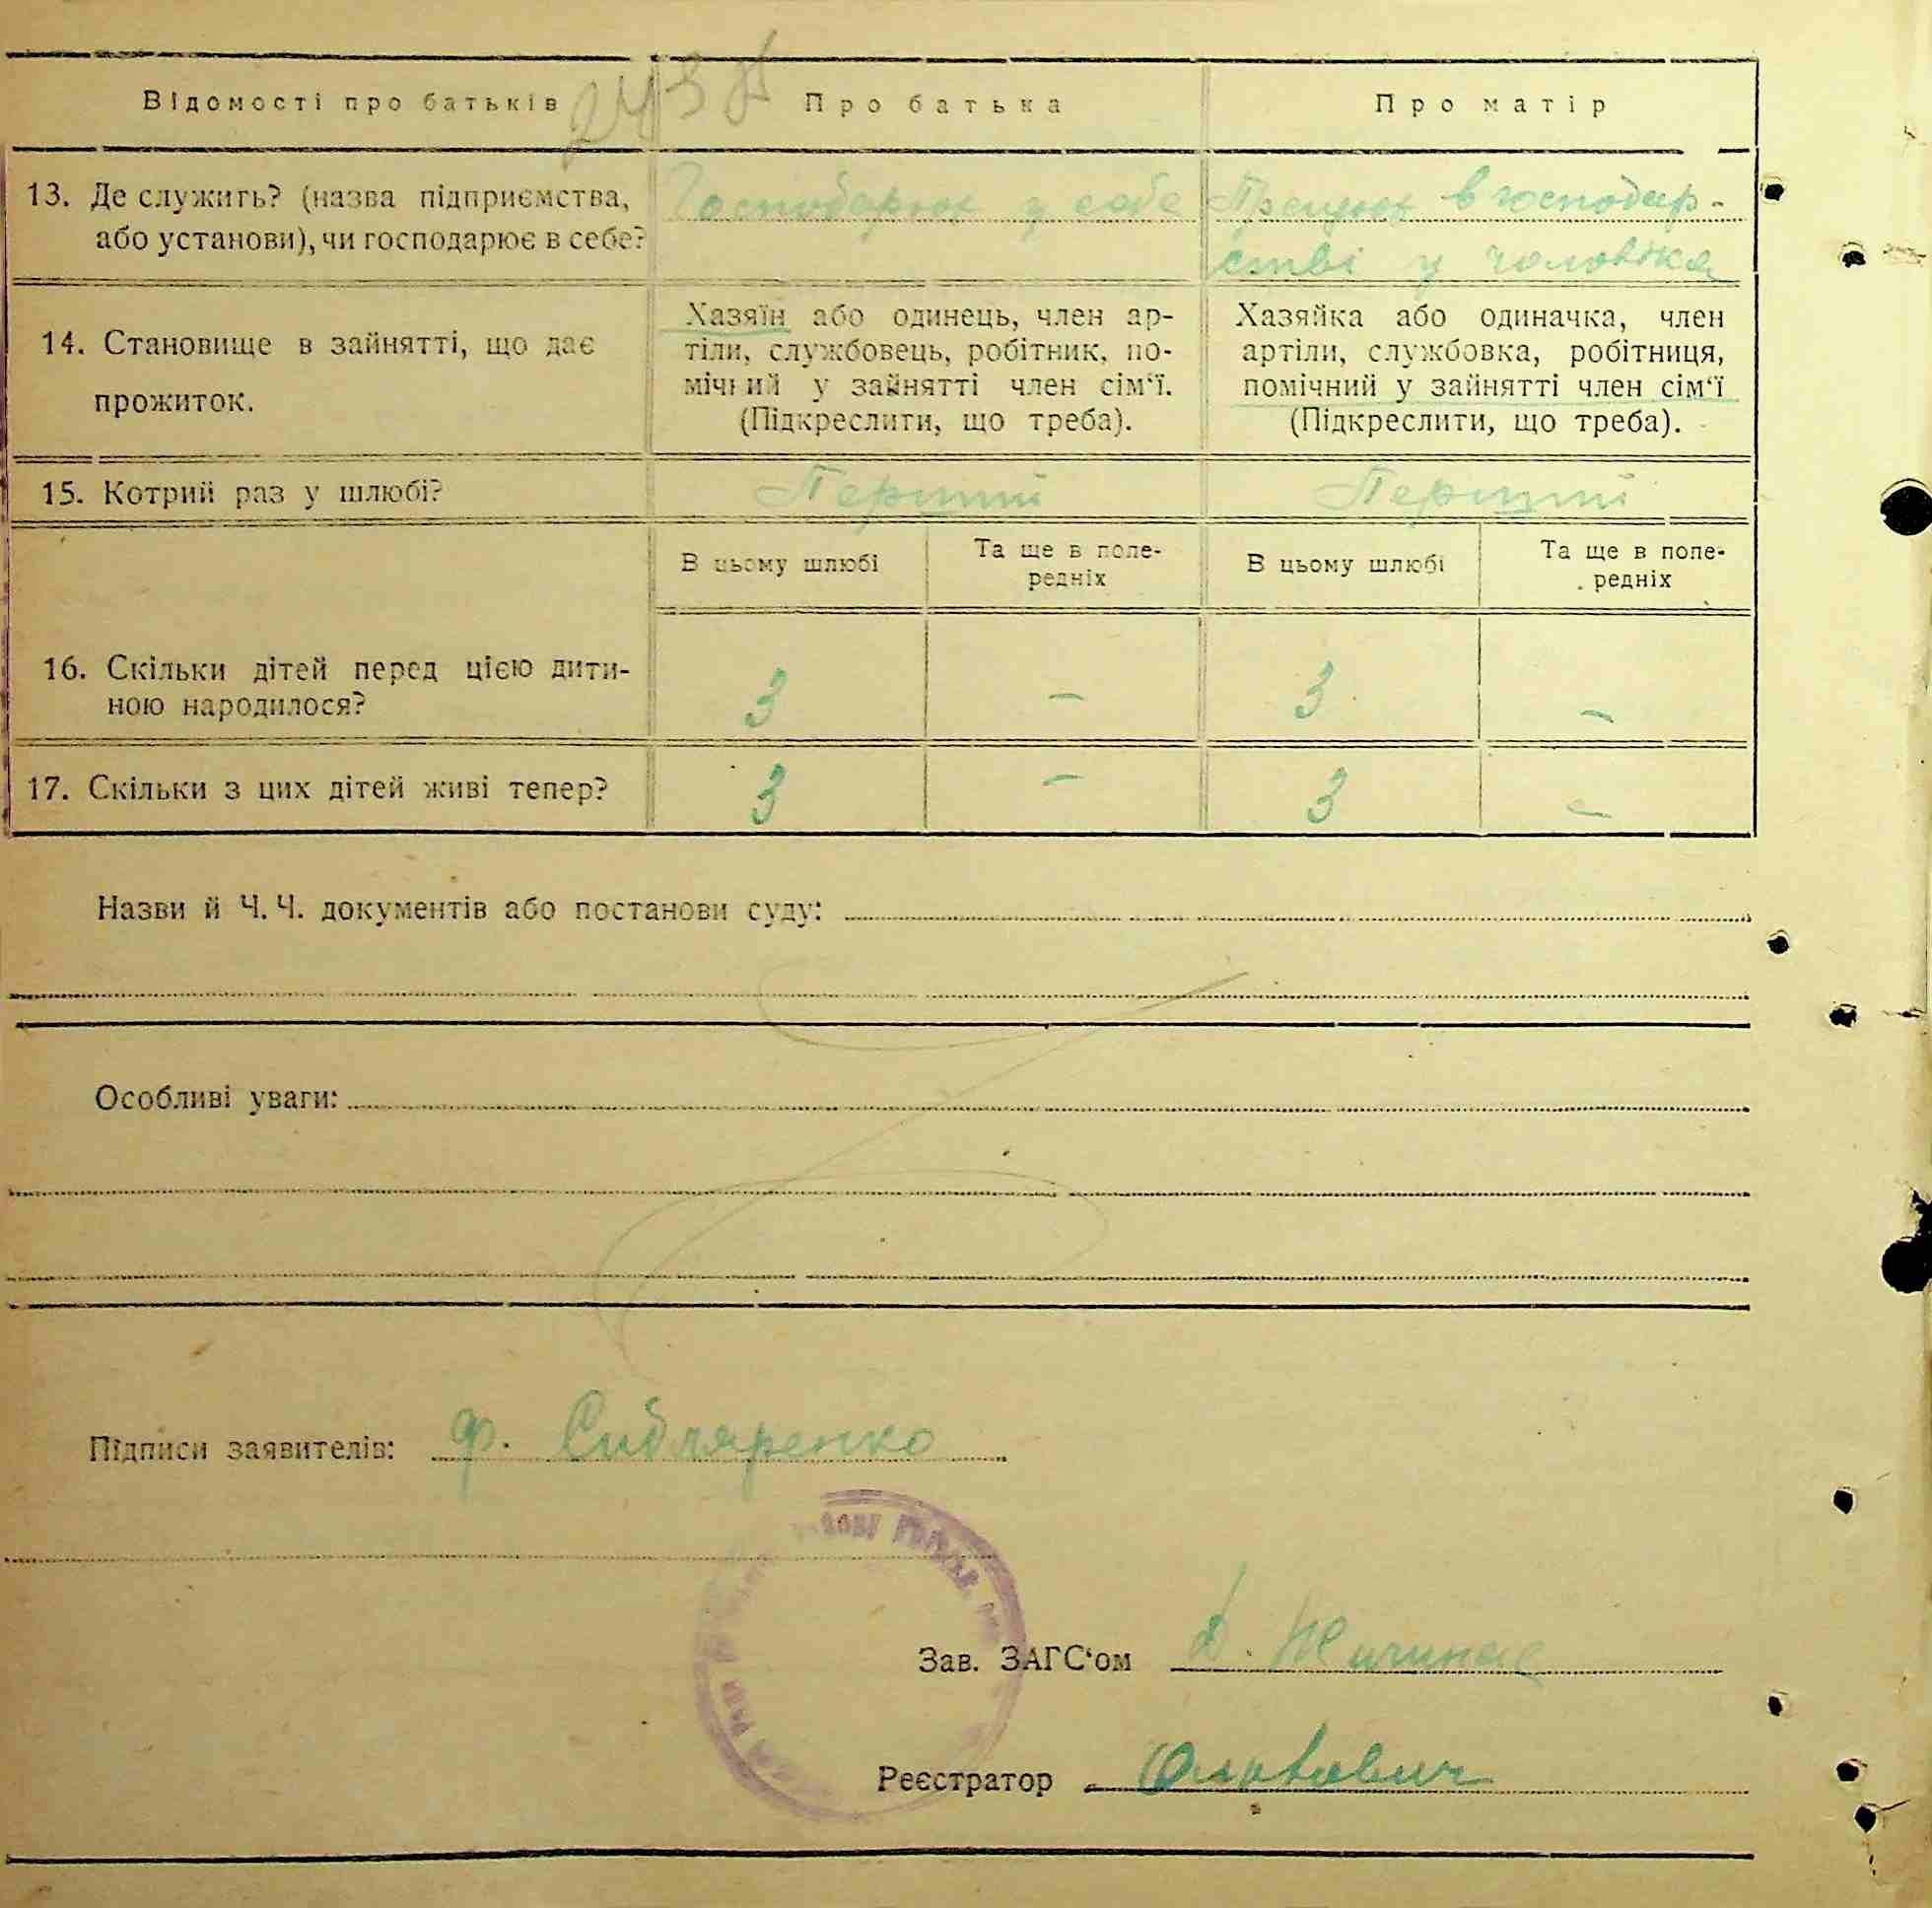 Відомості про батьків
Про батька
Про матір
13. Де служить? (назва підприємства,
або установи), чи господарює в себе?
Господарює у себе
Працює в господар-
стві у чоловіка
14. Становище в зайнятті, що дає
прожиток.
Хазяїн або одинець, член ар-
тіли, службовець, робітник, по-
мічний у зайнятті член сім‘ї.
(Підкреслити, що треба).
Хазяйка або одиначка, член
артіли, службовка, робітниця,
помічний у зайнятті член сім‘ї
(Підкреслити, що треба).
15. Котрий раз у шлюбі?
Перший
Перший
В цьому шлюбі
Та ще в попе-
редніх
В цьому шлюбі
Та ще в попе-
редніх
16. Скільки дітей перед цією дити-
ною народилося?
3 - 3 -
17. Скільки з цих дітей живі тепер?
3 - 3 -
Назви й Ч. Ч. документів або постанови суду:
Особливі уваги:
Підписи заявителів: Ф.
Зав. ЗАГС‘ом
Реєстратор